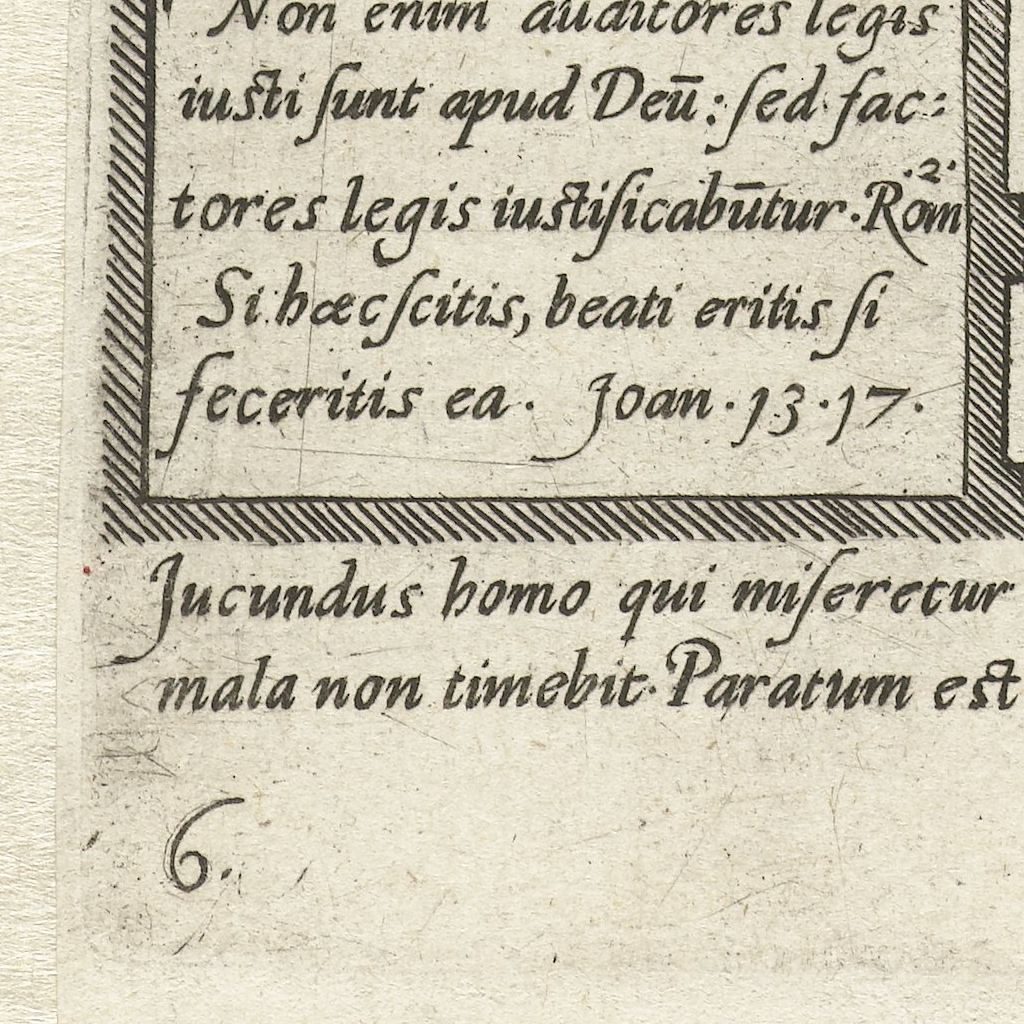 Non enim auditores legis
iusti ſunt apud Deū: ſed fac:
tores legis iustiſicabūtur. Rom .2.
Si hæc ſcitis, beati eritis ſi
feceritis ea. Joan. 13. 17.
Jucundus homo qui miſeretur
mala non timebit. Paratum est
6.